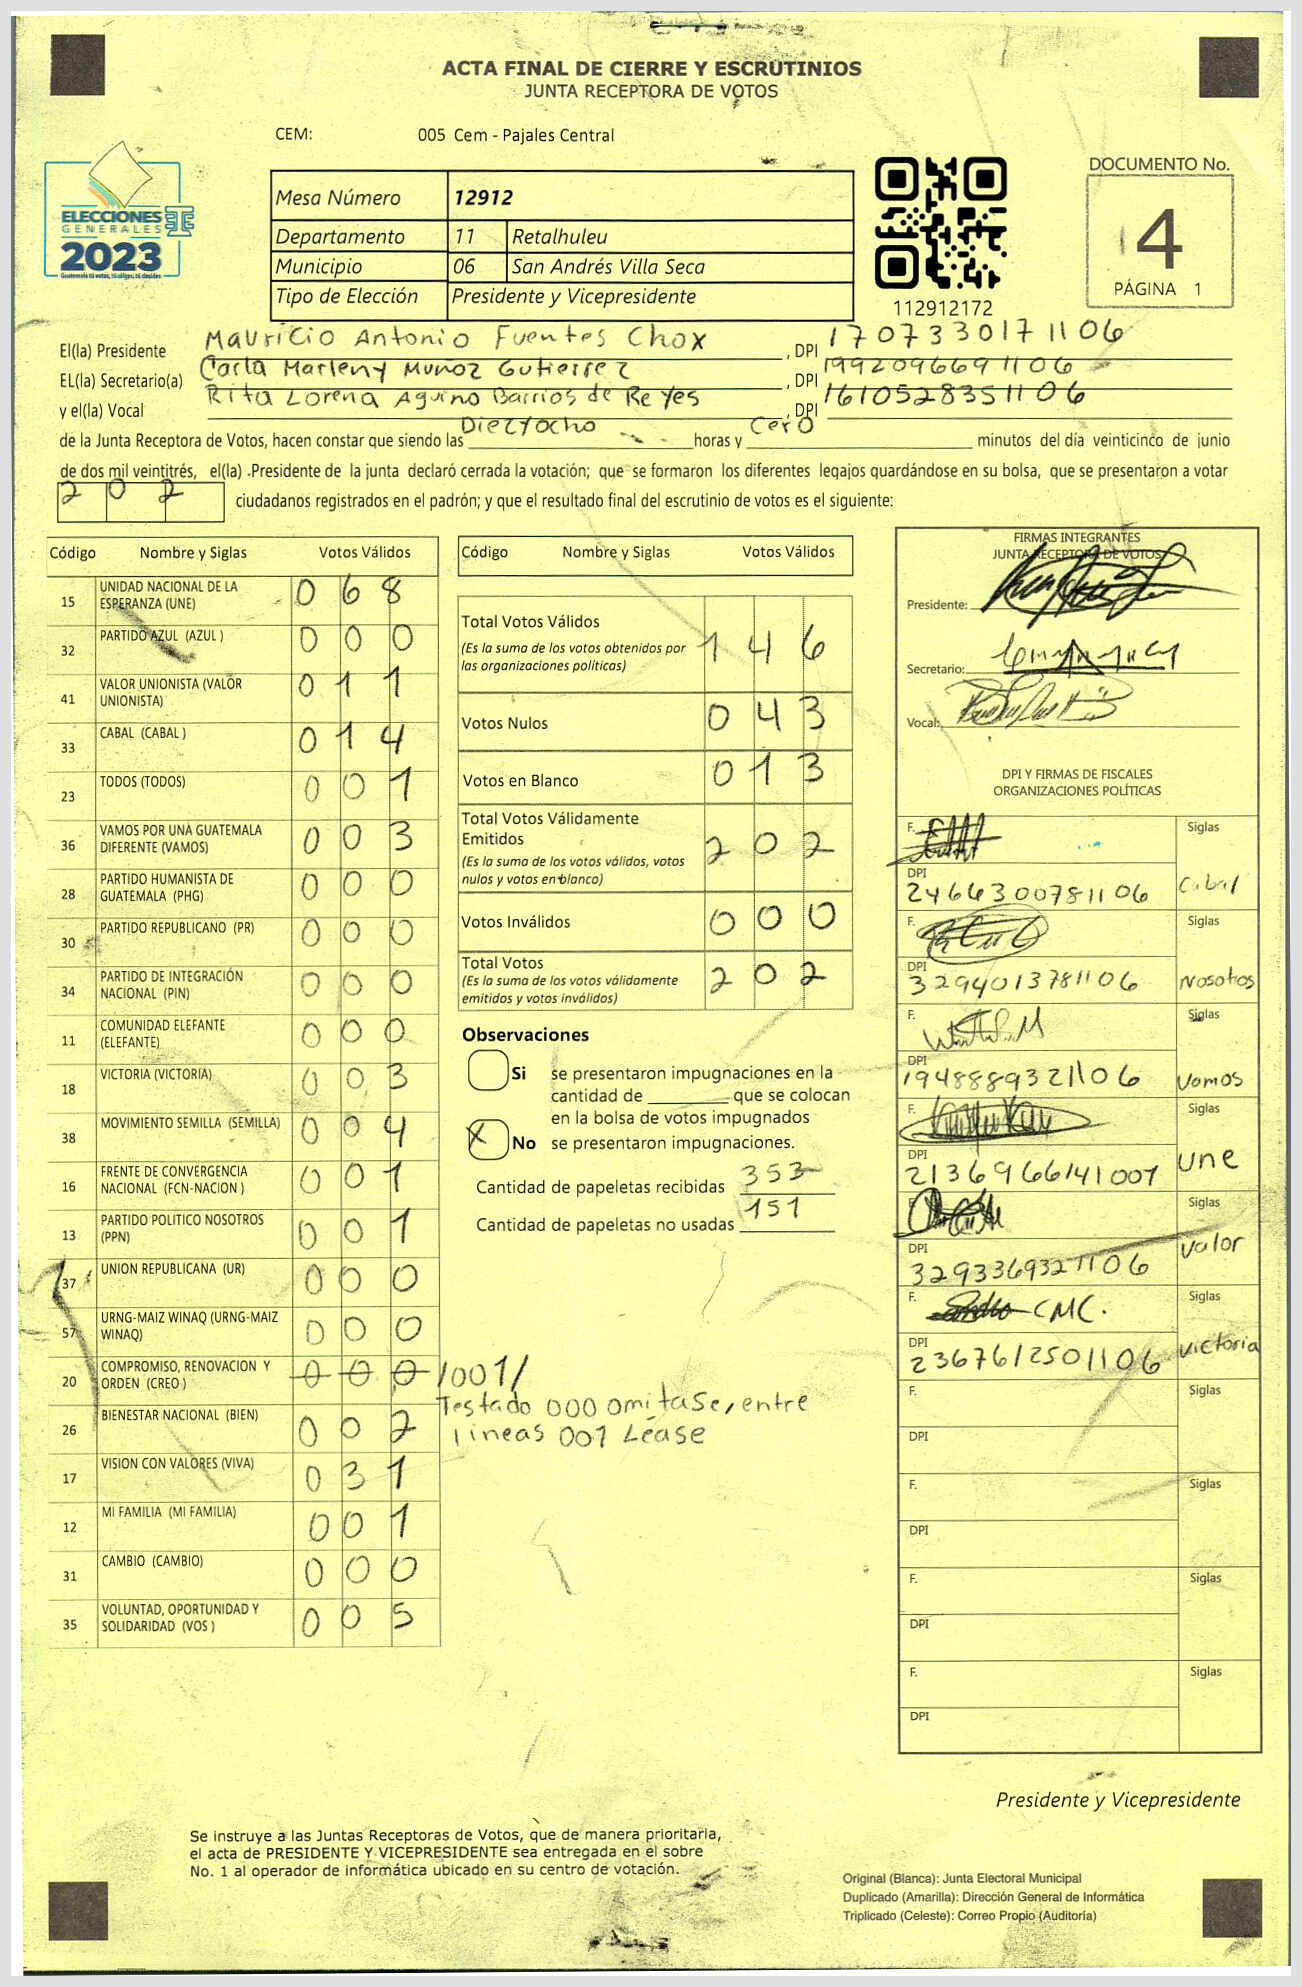 ACTA FINAL DE CIERRE Y ESCRUTINIOS
JUNTA RECEPTORA DE VOTOS
CEM: 005 Cem - Pajales Central
ELECCIONES
GENERALES
2023
Guatemala tú votas, tú eliges, tú decides
Mesa Número 12912
Departamento 11 Retalhuleu
Municipio 06 San Andrés Villa Seca
Tipo de Elección Presidente y Vicepresidente
112912172
DOCUMENTO No.
4
PÁGINA 1
El(la) Presidente Mauricio Antonio Fuentes Chox , DPI 1707330171106
EL(la) Secretario(a) Carla Marleny Muñoz Gutierrez , DPI 1992096691106
y el(la) Vocal Rita Lorena Aguino Barrios de Reyes , DPI 1610528351106
de la Junta Receptora de Votos, hacen constar que siendo las Dieciocho horas y Cero minutos del día veinticinco de junio
de dos mil veintitrés, el(la) Presidente de la junta declaró cerrada la votación; que se formaron los diferentes legajos guardándose en su bolsa, que se presentaron a votar
202 ciudadanos registrados en el padrón; y que el resultado final del escrutinio de votos es el siguiente:
Código Nombre y Siglas Votos Válidos
15 UNIDAD NACIONAL DE LA ESPERANZA (UNE) 068
32 PARTIDO AZUL (AZUL ) 000
41 VALOR UNIONISTA (VALOR UNIONISTA) 011
33 CABAL (CABAL ) 014
23 TODOS (TODOS) 001
36 VAMOS POR UNA GUATEMALA DIFERENTE (VAMOS) 003
28 PARTIDO HUMANISTA DE GUATEMALA (PHG) 000
30 PARTIDO REPUBLICANO (PR) 000
34 PARTIDO DE INTEGRACIÓN NACIONAL (PIN) 000
11 COMUNIDAD ELEFANTE (ELEFANTE) 000
18 VICTORIA (VICTORIA) 003
38 MOVIMIENTO SEMILLA (SEMILLA) 004
16 FRENTE DE CONVERGENCIA NACIONAL (FCN-NACION ) 001
13 PARTIDO POLITICO NOSOTROS (PPN) 001
37 UNION REPUBLICANA (UR) 000
57 URNG-MAIZ WINAQ (URNG-MAIZ WINAQ) 000
20 COMPROMISO, RENOVACION Y ORDEN (CREO ) 000 /001/
Testado 000 omitase, entre
lineas 001 Léase
26 BIENESTAR NACIONAL (BIEN) 002
17 VISION CON VALORES (VIVA) 031
12 MI FAMILIA (MI FAMILIA) 001
31 CAMBIO (CAMBIO) 000
35 VOLUNTAD, OPORTUNIDAD Y SOLIDARIDAD (VOS ) 005
Código Nombre y Siglas Votos Válidos
Total Votos Válidos 146
(Es la suma de los votos obtenidos por
las organizaciones politicas)
Votos Nulos 043
Votos en Blanco 013
Total Votos Válidamente
Emitidos 202
(Es la suma de los votos válidos, votos
nulos y votos en blanco)
Votos Inválidos 000
Total Votos 202
(Es la suma de los votos válidamente
emitidos y votos inválidos)
Observaciones
Si se presentaron impugnaciones en la
cantidad de ________ que se colocan
en la bolsa de votos impugnados
X No se presentaron impugnaciones.
Cantidad de papeletas recibidas 353
Cantidad de papeletas no usadas 151
FIRMAS INTEGRANTES
JUNTA RECEPTORA DE VOTOS
Presidente:
Secretario:
Vocal:
DPI Y FIRMAS DE FISCALES
ORGANIZACIONES POLÍTICAS
F. Siglas
DPI 2466300781106 Cabal
F. Siglas
DPI 3294013781106 Nosotros
F. Siglas
DPI 1948889321106 Vamos
F. Siglas
DPI 2136966141007 Une
F. Siglas
DPI 3293369321106 Valor
F. CMC. Siglas
DPI 2367612501106 Victoria
F. Siglas
DPI
F. Siglas
DPI
F. Siglas
DPI
F. Siglas
DPI
Presidente y Vicepresidente
Se instruye a las Juntas Receptoras de Votos, que de manera prioritaria,
el acta de PRESIDENTE Y VICEPRESIDENTE sea entregada en el sobre
No. 1 al operador de informática ubicado en su centro de votación.
Original (Blanca): Junta Electoral Municipal
Duplicado (Amarilla): Dirección General de Informática
Triplicado (Celeste): Correo Propio (Auditoría)